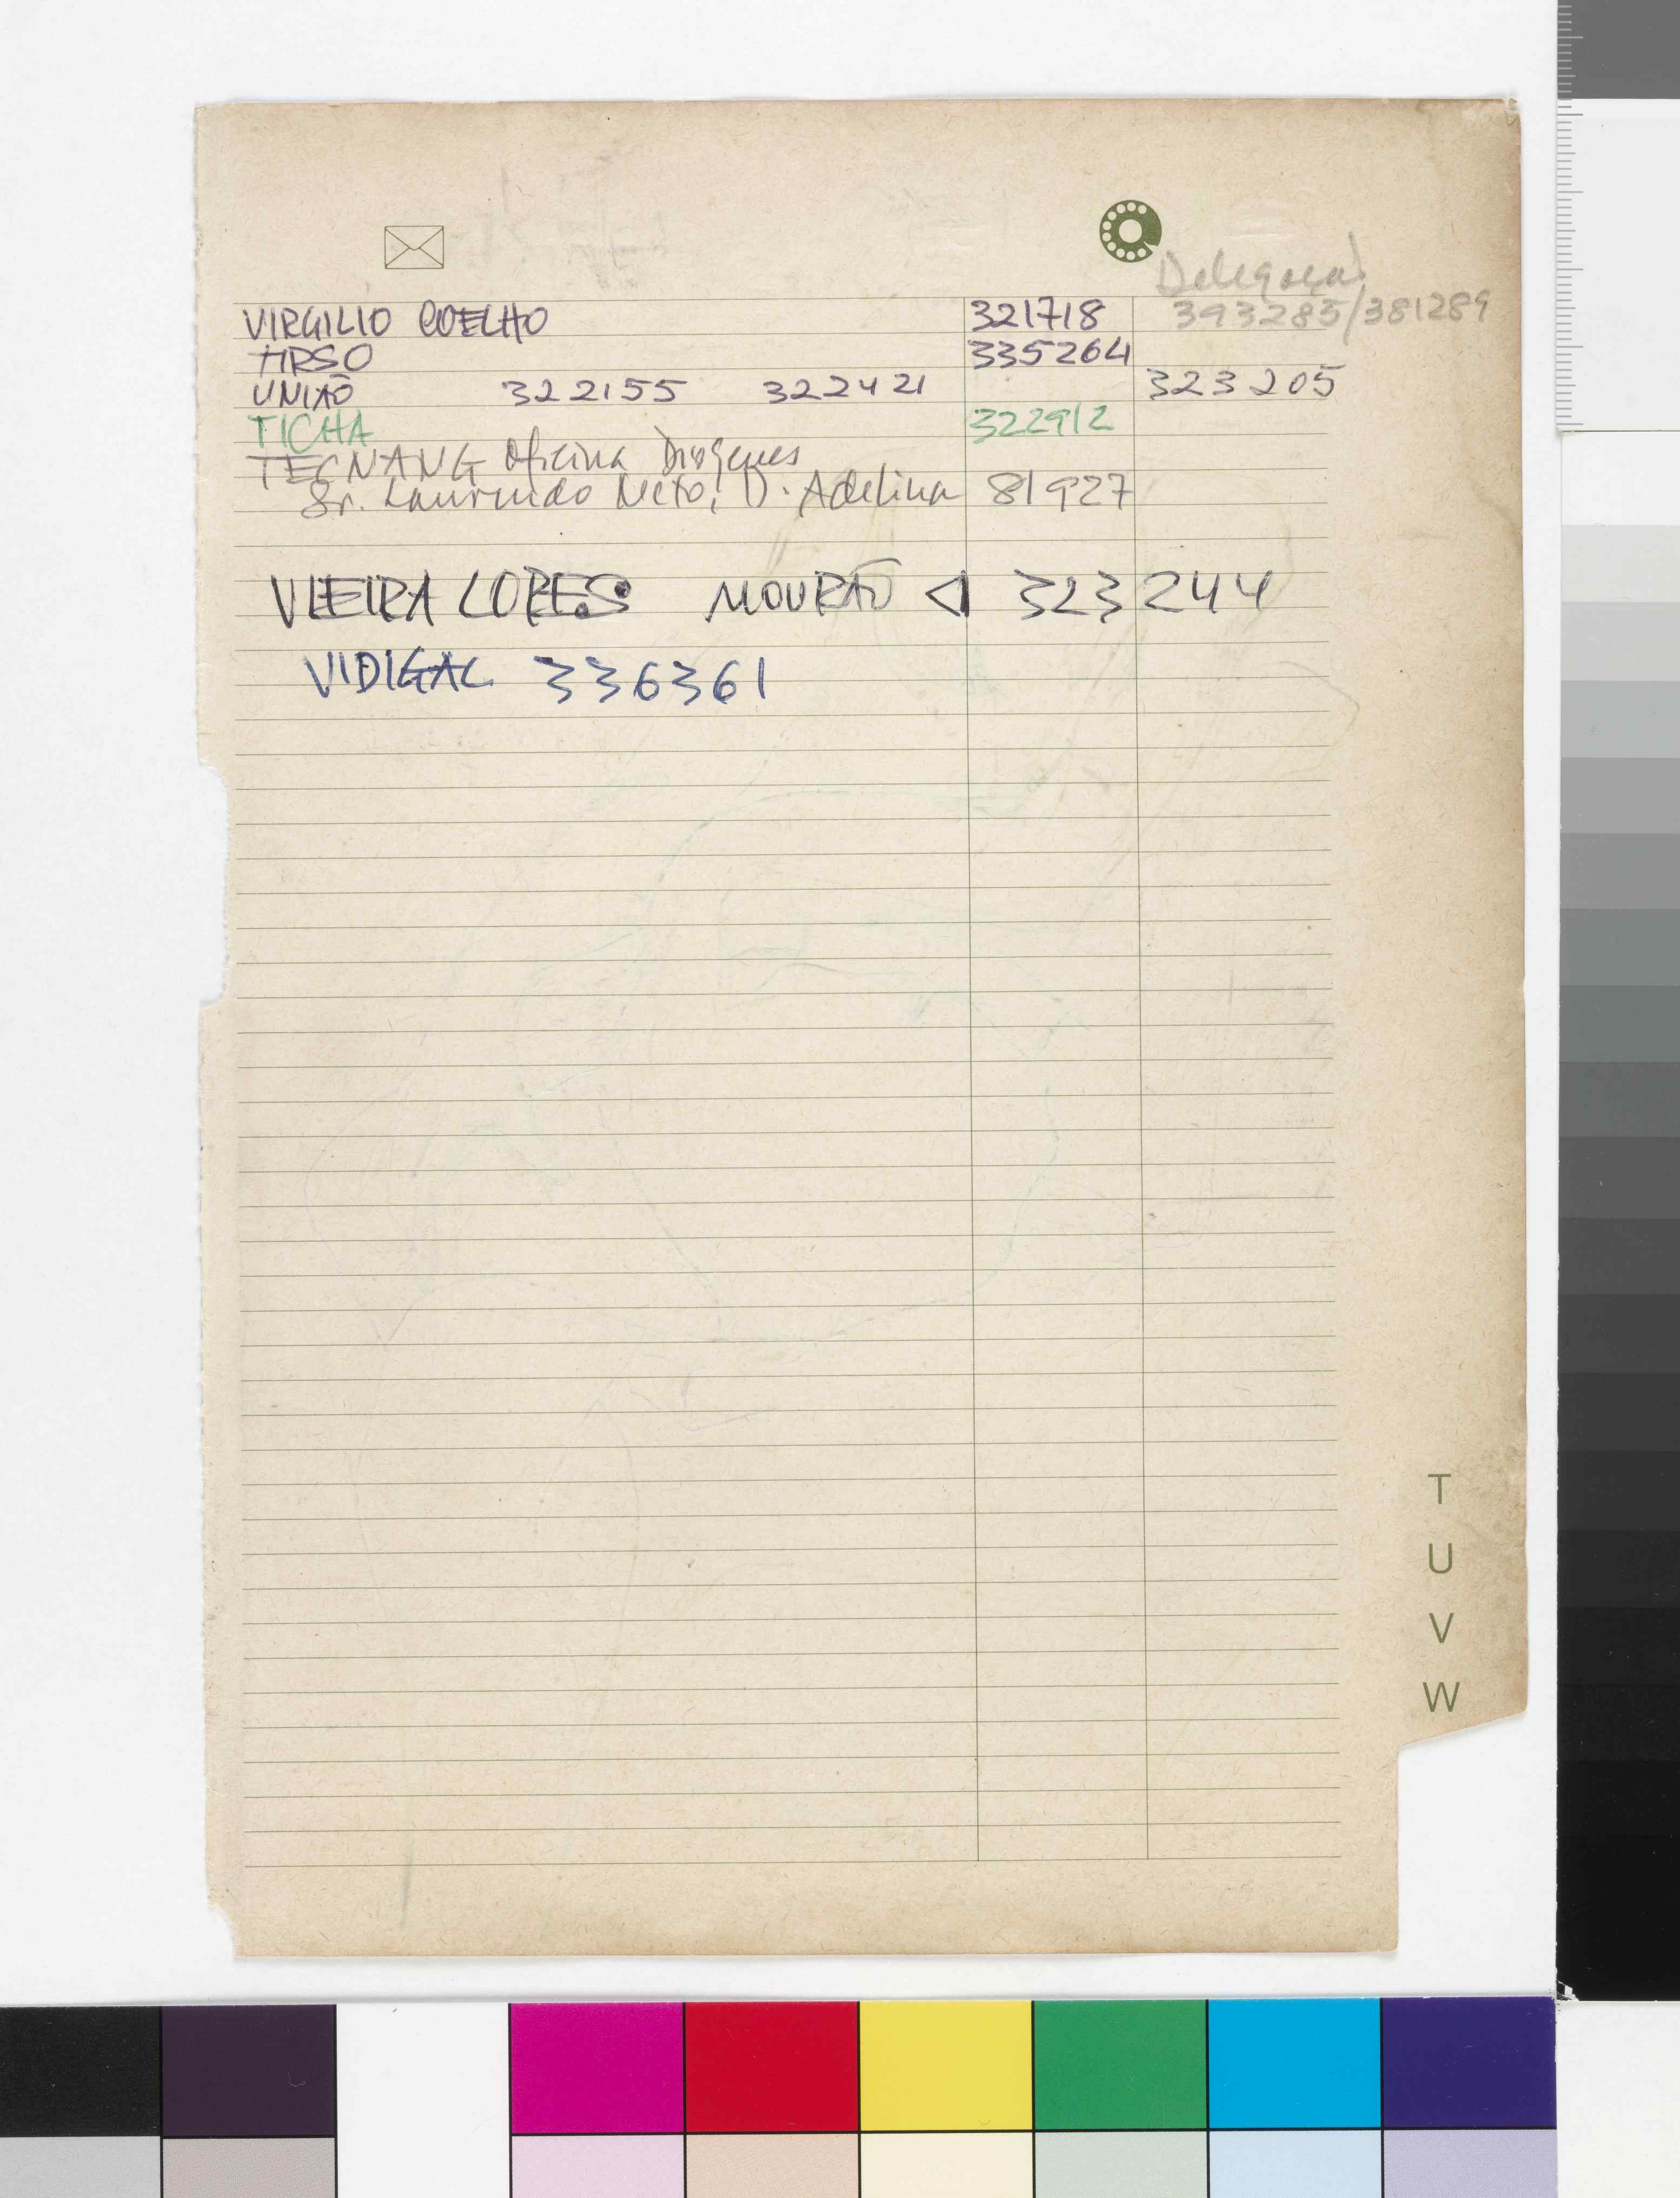 Delegacal
VIRGILIO COELHO 321718 393285/381289
TIRSO 335264
UNIÃO 322155 322421 323205
TICHA 322912
TECNANG Oficina Diógenes
Sr. Laurindo Neto, D. Adelina 81927
VIEIRA LOPES MOURÃO 323244
VIDIGAL 336361
T
U
V
W